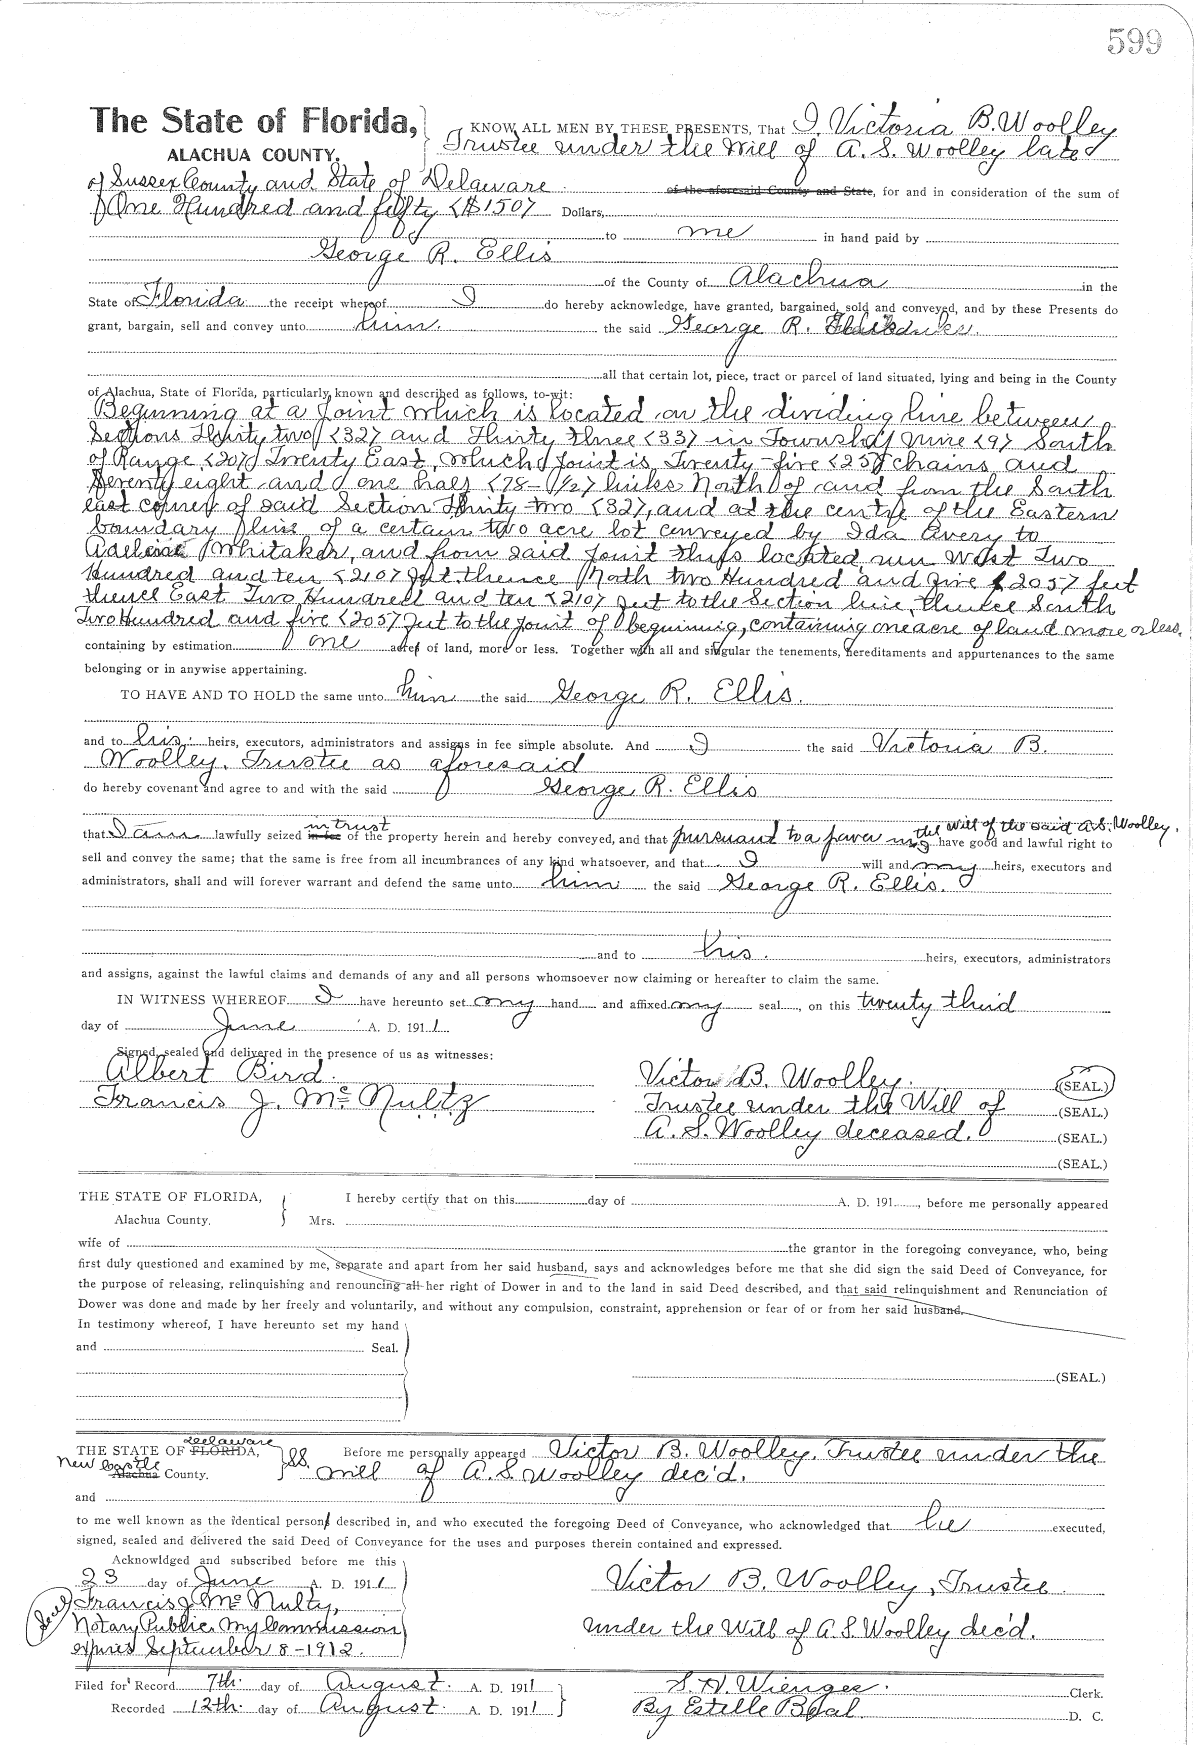 599
The State of Florida, KNOW ALL MEN BY THESE PRESENTS, That I, Victoria B. Woolley
ALACHUA COUNTY. Trustee under the Will of A. S. Woolley late
of Sussex County and State of Delaware of the aforesaid County and State, for and in consideration of the sum of
One Hundred and fifty <$150> Dollars,
to me in hand paid by
George R. Ellis
of the County of Alachua in the
State of Florida the receipt whereof I do hereby acknowledge, have granted, bargained, sold and conveyed, and by these Presents do
grant, bargain, sell and convey unto him. the said George R.
all that certain lot, piece, tract or parcel of land situated, lying and being in the County
of Alachua, State of Florida, particularly known and described as follows, to-wit:
Beginning at a point which is located on the dividing line between
Sections Thirty two <32> and Thirty three <33> in Township nine <9> South
of Range <20> Twenty East, which point is Twenty-five <25> chains and
Seventy eight and one half <78-1/2> links North of and from the South
east corner of said Section Thirty two <32>, and at the centre of the Eastern
boundary line of a certain two acre lot conveyed by Ida Avery to
Whitaker, and from said point thus located, run West Two
Hundred and ten <210> feet thence North two Hundred and five <205> feet
thence East Two Hundred and ten <210> feet to the Section line, thence South
Two Hundred and five <205> feet to the point of beginning, containing one acre of land more or less.
containing by estimation one acres of land, more or less. Together with all and singular the tenements, hereditaments and appurtenances to the same
belonging or in anywise appertaining.
TO HAVE AND TO HOLD the same unto him the said George R. Ellis.
and to his heirs, executors, administrators and assigns in fee simple absolute. And I the said Victoria B.
Woolley, Trustee as aforesaid
do hereby covenant and agree to and with the said George R. Ellis
that I am lawfully seized in fee in trust of the property herein and hereby conveyed, and that pursuant to a power in the Will of the said A. S. Woolley, have good and lawful right to
sell and convey the same; that the same is free from all incumbrances of any kind whatsoever, and that I will and my heirs, executors and
administrators, shall and will forever warrant and defend the same unto him the said George R. Ellis.
and to his. heirs, executors, administrators
and assigns, against the lawful claims and demands of any and all persons whomsoever now claiming or hereafter to claim the same.
IN WITNESS WHEREOF I have hereunto set my hand and affixed my seal, on this twenty third
day of June A. D. 1911.
Signed, sealed and delivered in the presence of us as witnesses:
Albert Bird. Victor B. Woolley. (SEAL.)
Francis J. McNultz Trustee under the Will of (SEAL.)
A. S. Woolley deceased. (SEAL.)
(SEAL.)
THE STATE OF FLORIDA, I hereby certify that on this day of A. D. 191, before me personally appeared
Alachua County. Mrs.
wife of the grantor in the foregoing conveyance, who, being
first duly questioned and examined by me, separate and apart from her said husband, says and acknowledges before me that she did sign the said Deed of Conveyance, for
the purpose of releasing, relinquishing and renouncing all her right of Dower in and to the land in said Deed described, and that said relinquishment and Renunciation of
Dower was done and made by her freely and voluntarily, and without any compulsion, constraint, apprehension or fear of or from her said husband.
In testimony whereof, I have hereunto set my hand
and Seal.
(SEAL.)
THE STATE OF FLORIDA, Delaware SS. Before me personally appeared Victor B. Woolley, Trustee under the
New Castle Alachua County. will of A. S. Woolley dec'd.
and
to me well known as the identical person described in, and who executed the foregoing Deed of Conveyance, who acknowledged that he executed,
signed, sealed and delivered the said Deed of Conveyance for the uses and purposes therein contained and expressed.
Acknowldged and subscribed before me this
23 day of June A. D. 1911. Victor B. Woolley, Trustee
Seal Francis J. McNulty,
Notary Public. My Commission under the Will of A. S. Woolley dec'd.
expires September 8-1912.
Filed for Record 7th. day of August. A. D. 1911 S. H. Wienges. Clerk.
Recorded 12th. day of August. A. D. 1911 By Estelle Beal. D. C.